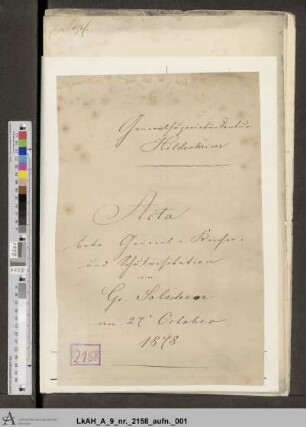 Generalsuperintendentur
Hildesheim
Acta
betr. General-Kirchen-
und Schulvisitation
in
Gr. Solschen
am 27t October
1878
2158
LkAH_A_9_nr._2158_aufn._001